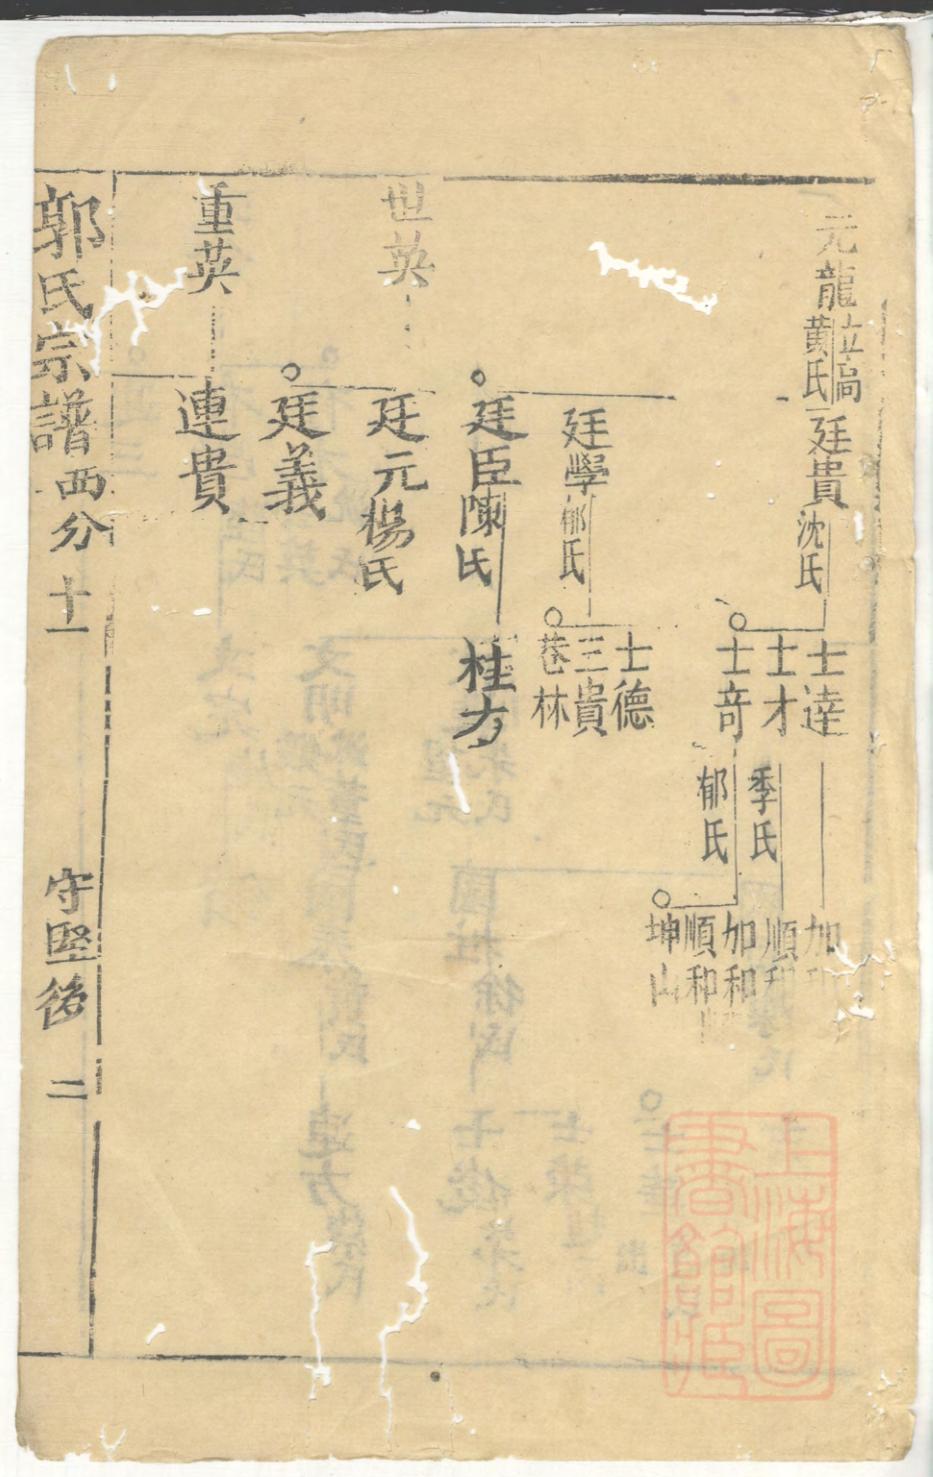 元龍 立高 黄氏
廷貴 沈氏
士達
士才 季氏
士竒 郁氏
加
順和
加和
順和
坤山
廷學 郁氏
士德
三貴
廷臣 陳氏
桂方
世英
廷元 楊氏
廷義
重英
連貴
郭氏宗譜 西分 十一 守堅後 二
上海圖
書館藏